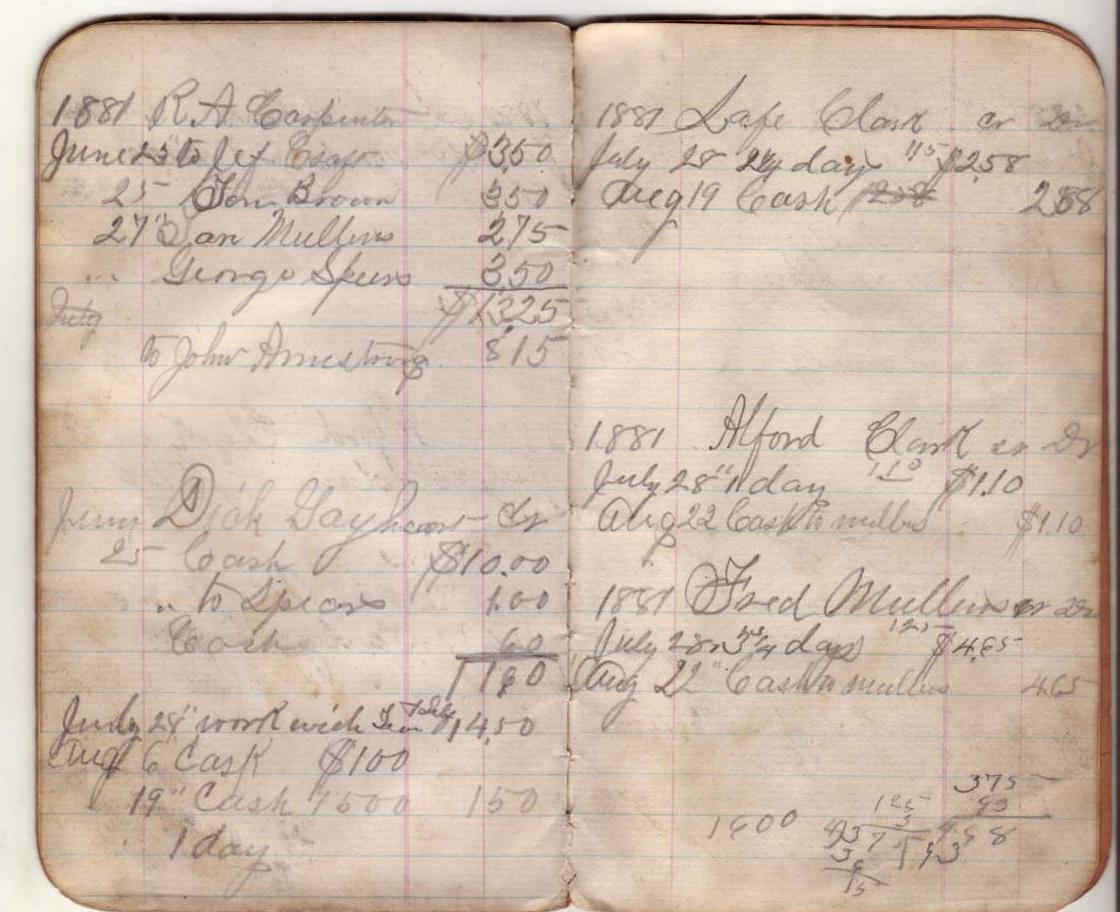 1881 R A Carpenter
June 25 to $3.50
25 Tom Brown 350
27" Dan Mullins 275
" George Spears 3.50
$1325
July
to John Armstrong 815
June Dick Gayheart Dr
25 Cash $10.00
" to Spears 100
Cash 60
160
July 28" work with Team 14.50
Aug 6 Cash $100
19" Cash 150
1 day
1881 Lafe Clark cr Dr
July 28 2¼ day 115 $2.58
Aug 19 Cash 258 258
1881 Alford Clark cr Dr
July 28" 1 day 110 $1.10
Aug 22 Cash to mullins $1.10
1881 Fred Mullins cr Dr
July 28" 3¾ days 125 $4.65
Aug 22" Cash to mullins 465
375
125
3